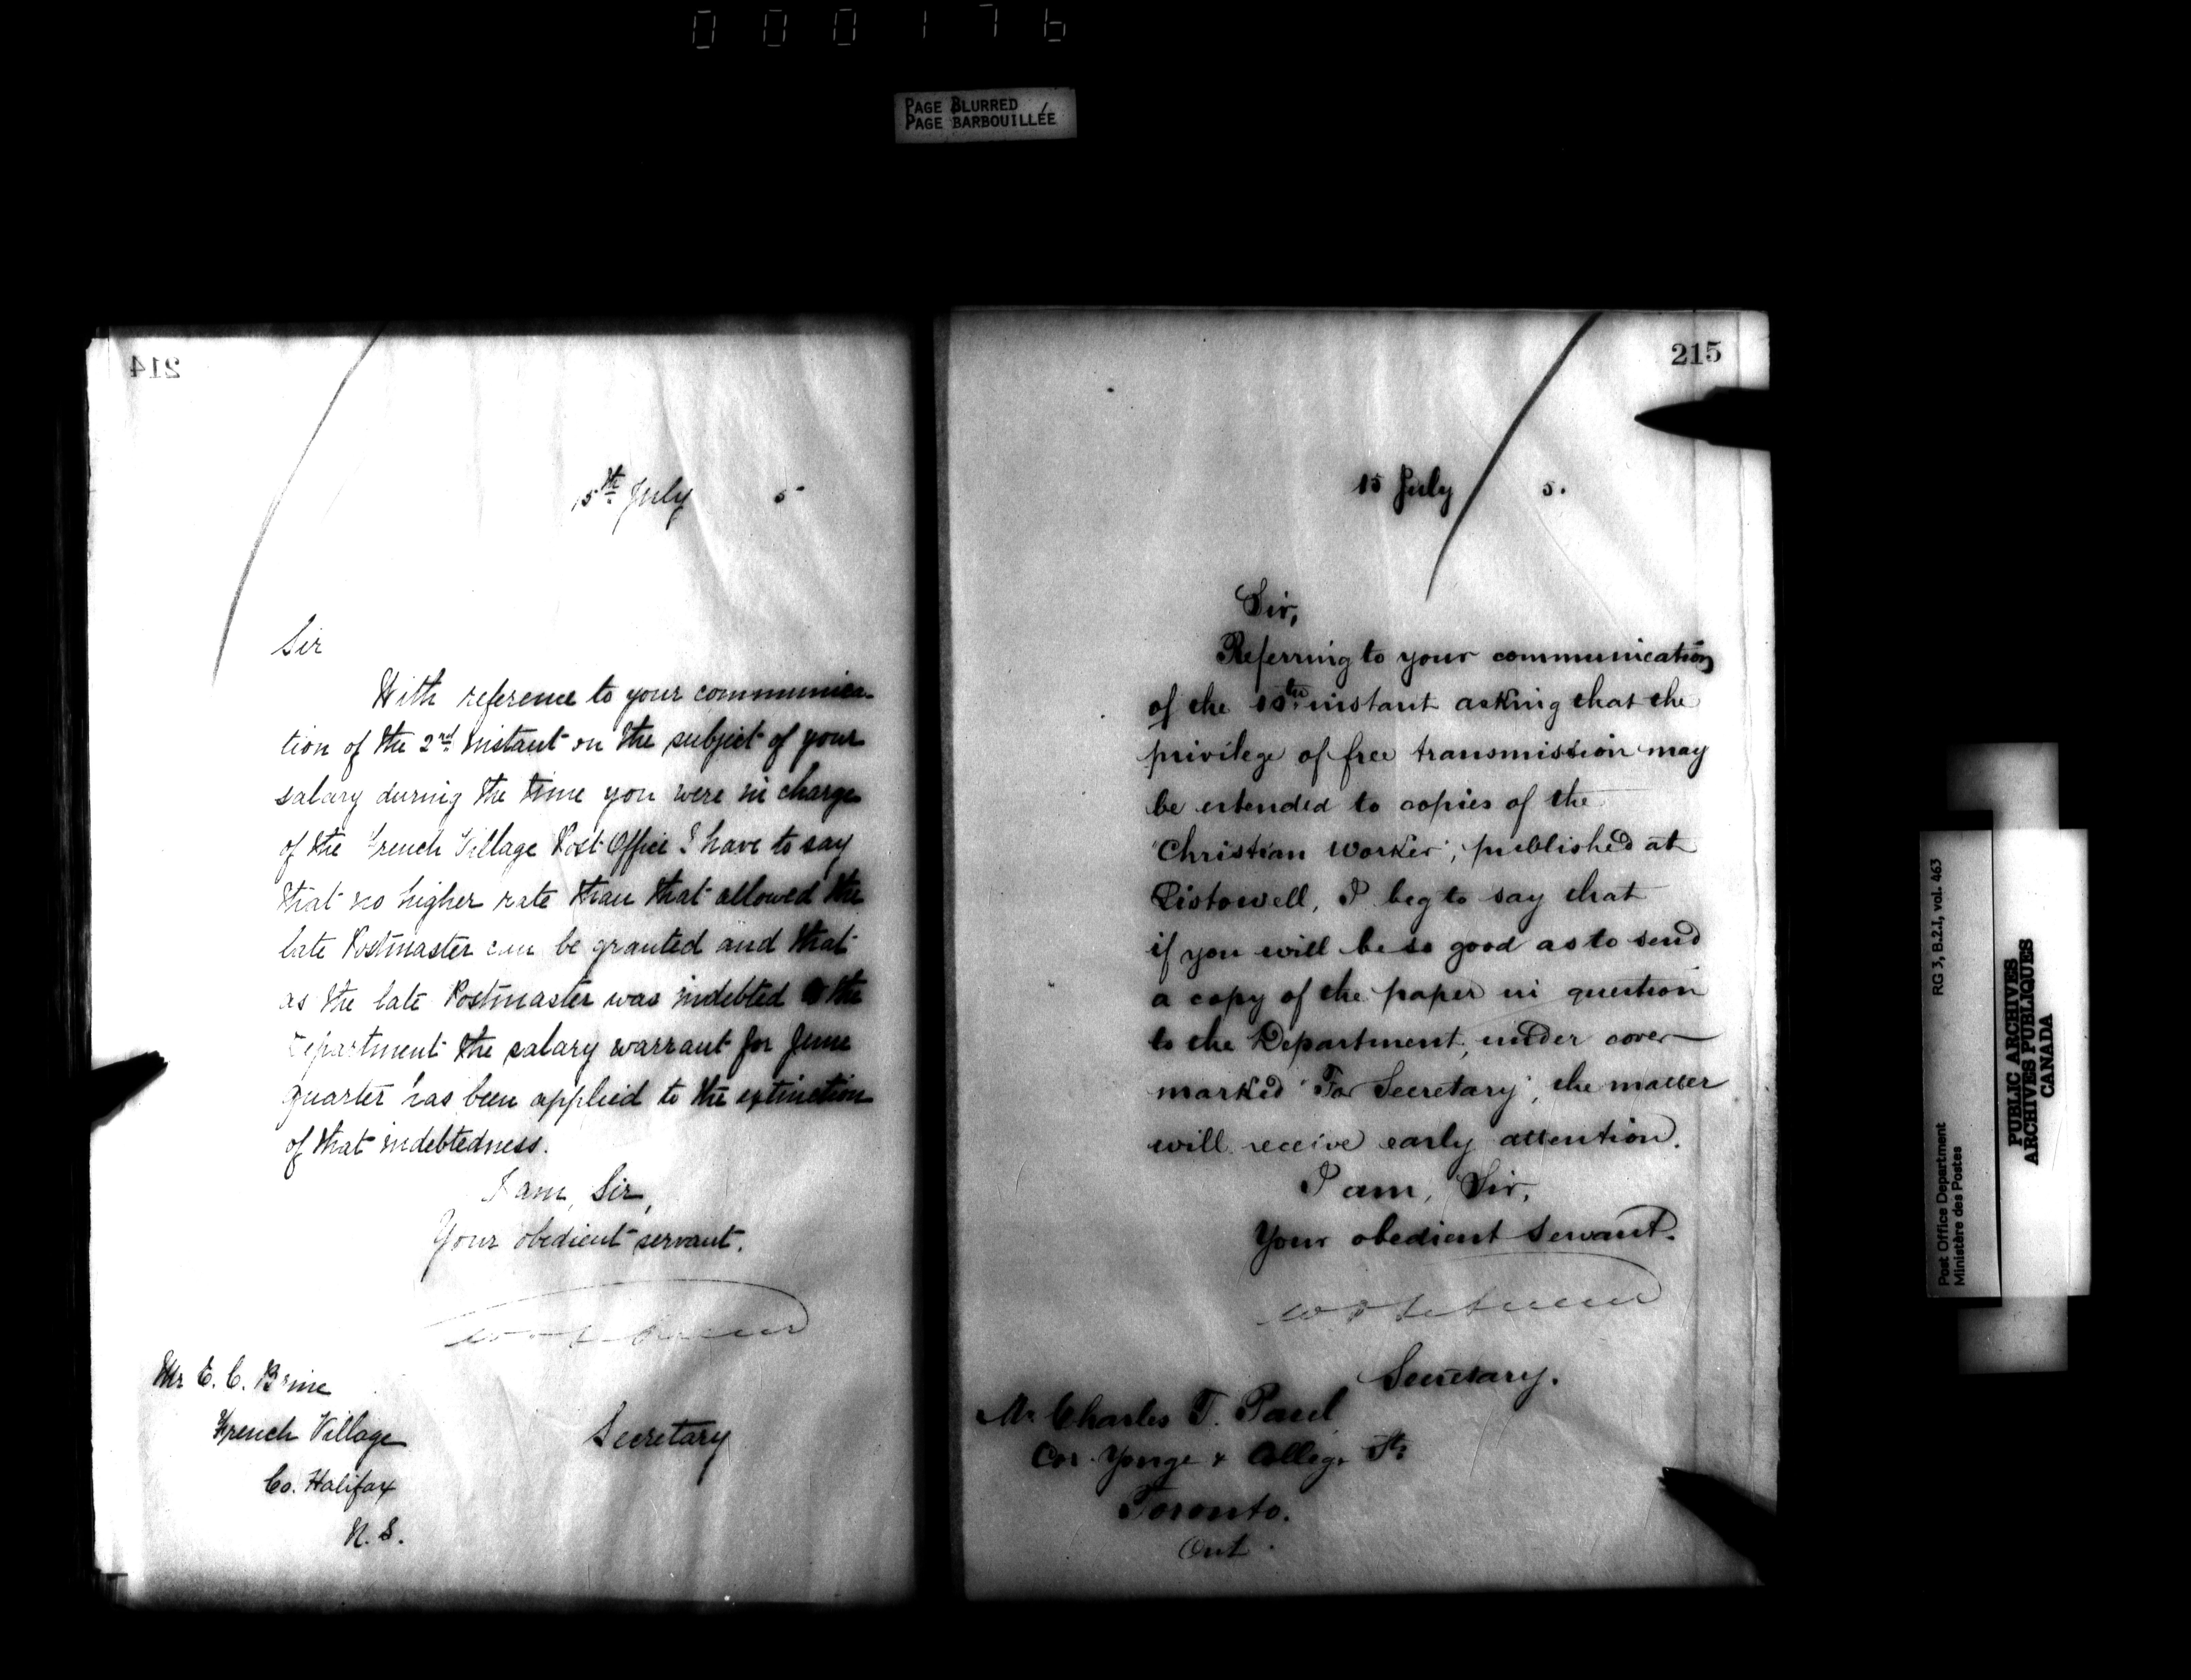 000176
PAGE BLURRED
PAGE BARBOUILLÉE
214
15th July 5
Sir
With reference to your communica-
tion of the 2nd instant on the subject of your
salary during the time you were in charge
of the French Village Post Office I have to say
that no higher rate than that allowed the
late Postmaster can be granted and that
as the late Postmaster was indebted to the
Department the salary warrant for June
quarter has been applied to the extinction
of that indebtedness.
I am, Sir,
Your obedient servant.
Mr E. C. Brine
French Village
Co. Halifax
N. S.
Secretary
215
15 July 5.
Sir,
Referring to your communication
of the 10th instant asking that the
privilege of free transmission may
be extended to copies of the
"Christian Worker", published at
Listowell, I beg to say that
if you will be so good as to send
a copy of the paper in question
to the Department, under cover
marked "For Secretary", the matter
will receive early attention.
I am, Sir,
Your obedient Servant.
Secretary.
Mr Charles T. Paul
Cor. Yonge & College Sts
Toronto.
Ont.
RG 3, B.2.1, vol. 463
Post Office Department
Ministère des Postes
PUBLIC ARCHIVES
ARCHIVES PUBLIQUES
CANADA